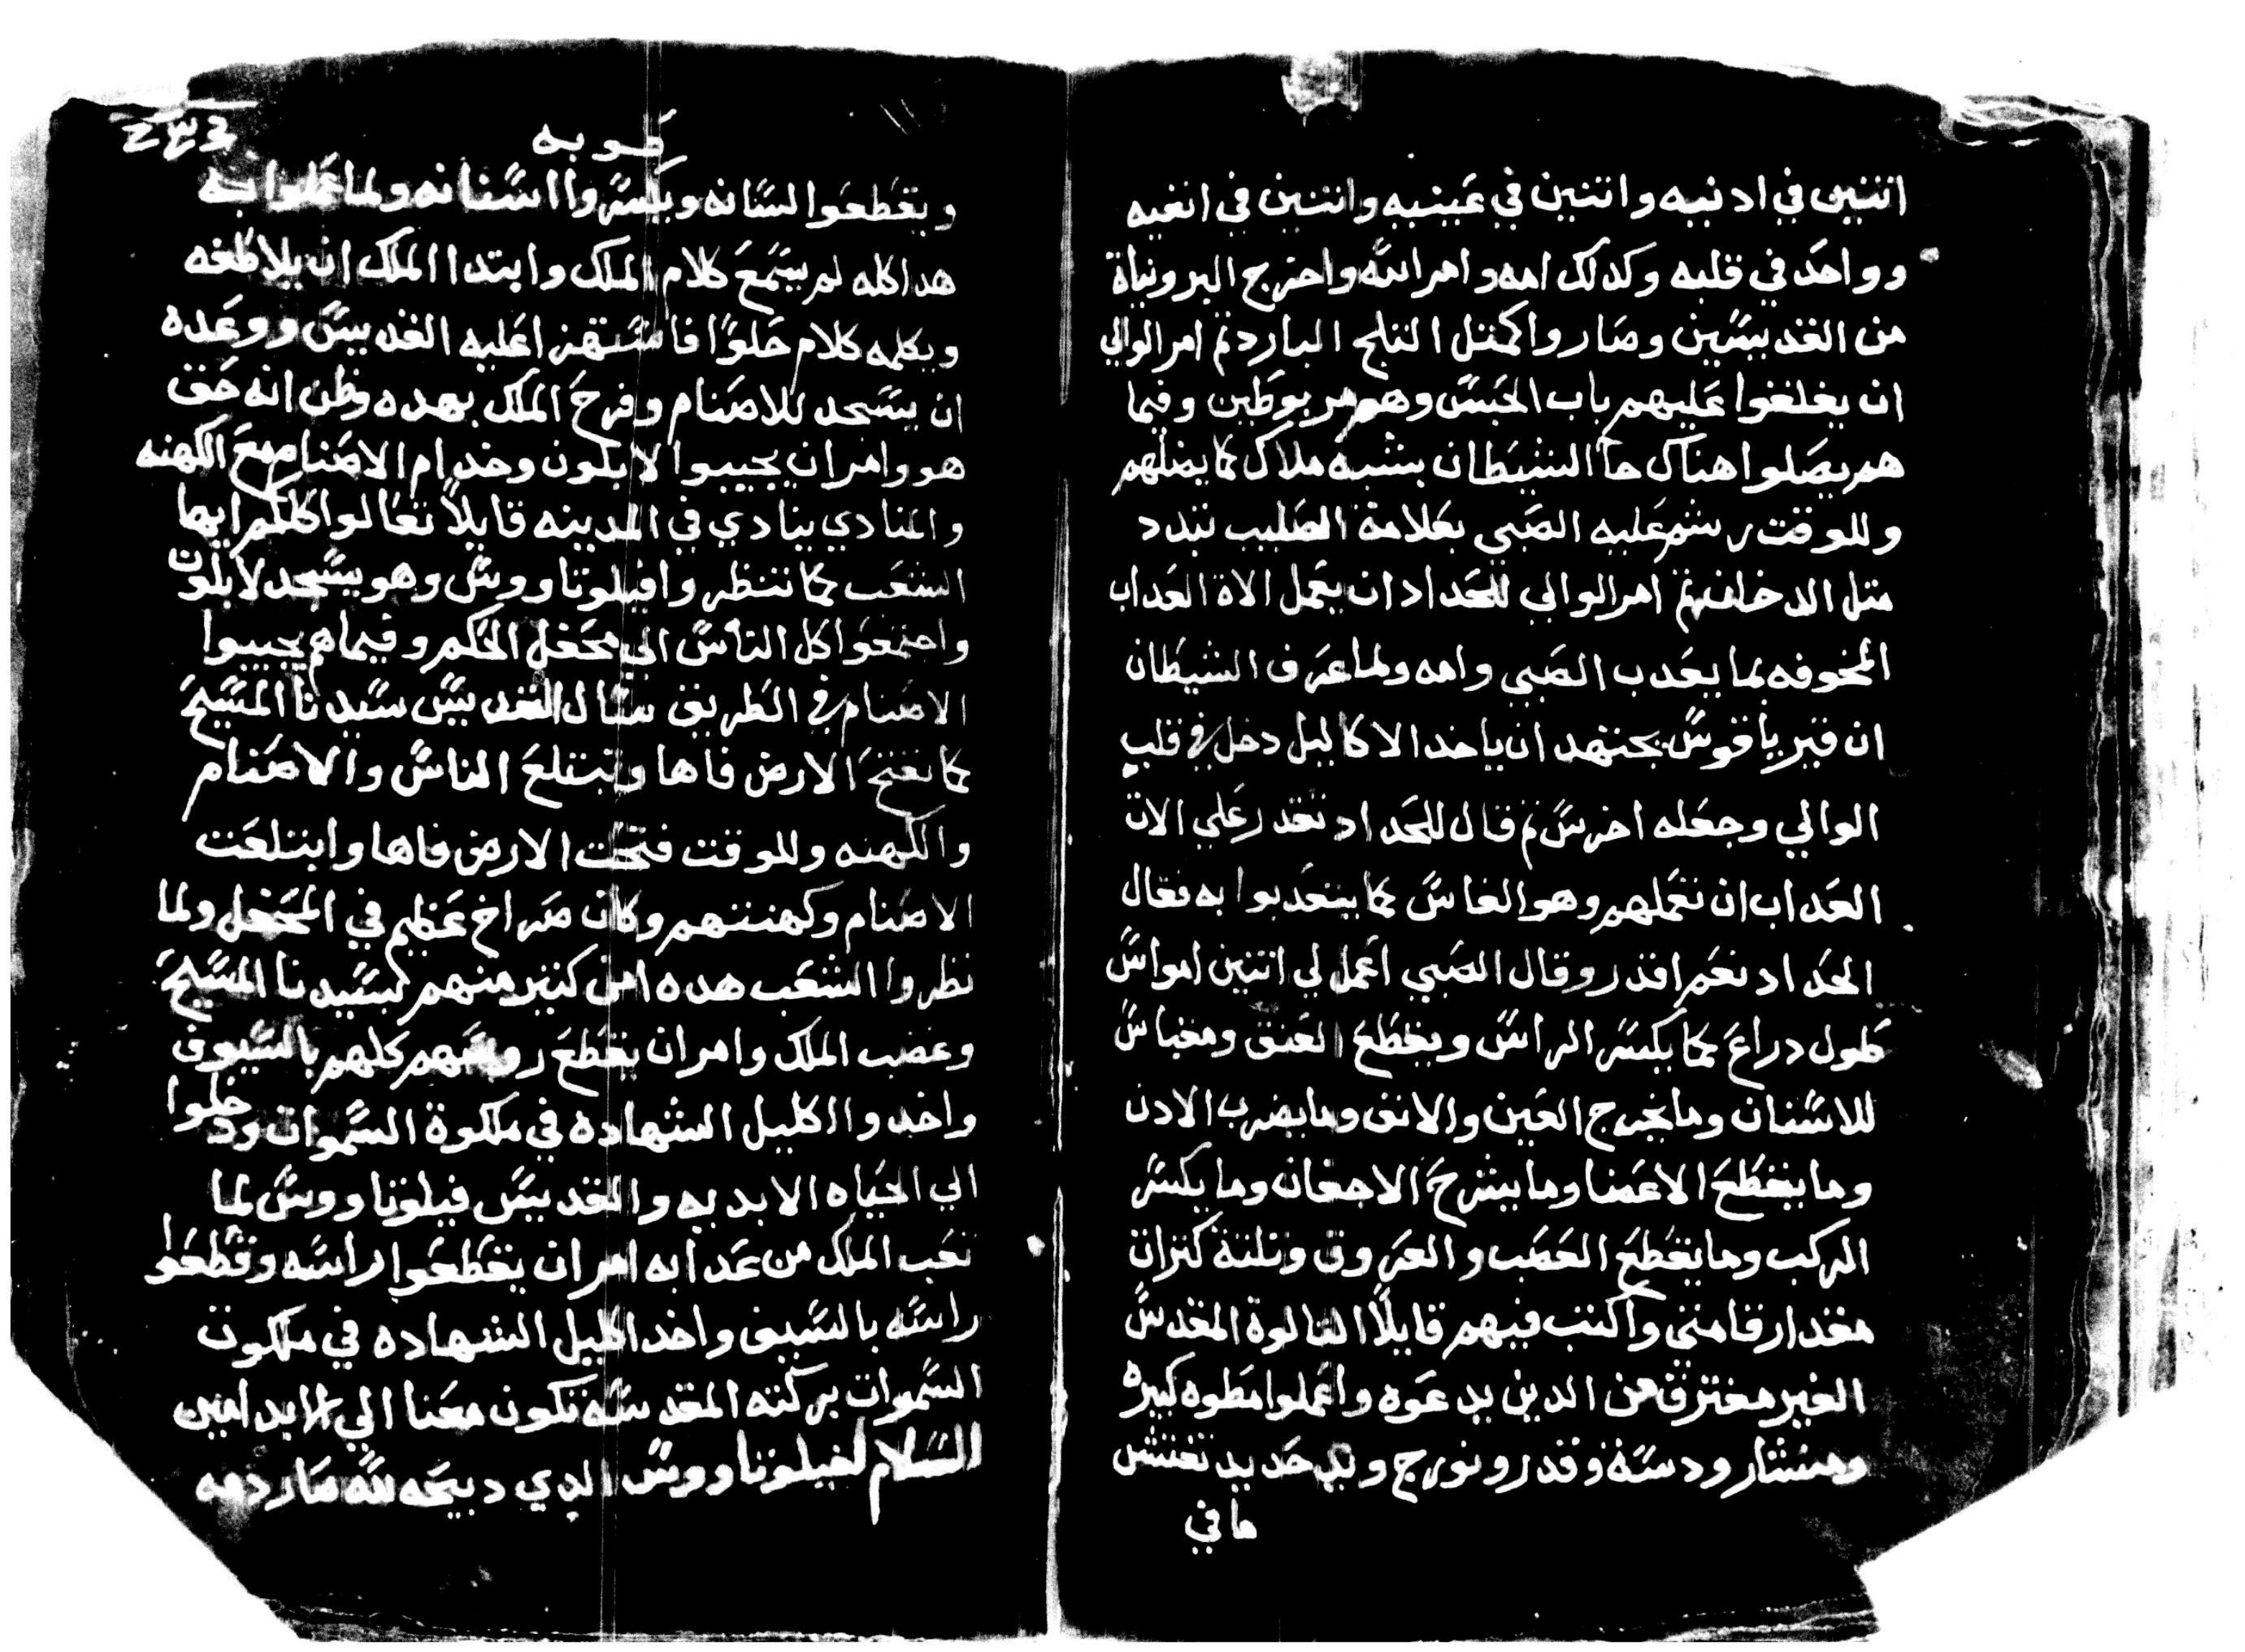 اتنين في ادنيه واتنين في عينيه واتنين في انفيه
وواحد في قلبه وكدلك امه وامر الله واخرج البرونياة
من القديسين وصاروا كمتل التلج البارد تم امر الوالي
ان يغلقوا عليهم باب الحبس وهم مربوطين وفيما
هم يصلوا هناك جآ الشيطان بشبه ملاك كما يضلهم
وللوقت رشم عليه الصبي بعلامة الصليب تبدد
متل الدخان تم امر الوالي للحداد ان يعمل الاة العداب
المخوفه بما يعدب الصبي وامه ولما عرف الشيطان
ان قيرياقوس يجتهد ان ياخد الاكاليل دخل في قلب
الوالي وجعله اخرس تم قال للحداد تقدر علي الات
العداب ان تعملهم وهو الفاس كما يتعدبوا به فقال
الحداد نعم اقدر وقال الصبي اعمل لي اتنين امواس
طول دراع كما يكسر الراس ويقطع العنق ومقباس
للاسنان وما يخرج العين والانف وما يضرب الادن
وما يقطع الاعضا وما يشرح الاجفان وما يكسر
المركب وما يقطع العصب والعروق وتلتة كنزات
مقدار قامتي واكتب فيهم قايلاً التالوة المقدس
الغير مفترق من الدين يدعوه واعملوا مطوه كبيره
ومنشار ودسته وقدر ونورج ويد حديد تفتش
ما في
طوبه
ويقطعوا لسانه ويكسروا اسنانه ولما عملوا به
هدا كله لم يسمع كلام الملك وابتدا الملك ان يلاطفه
ويكلمه كلام حلوًا فاستهزا عليه القديس ووعده
ان يسجد للاصنام وفرح الملك بهده وظن انه حق
هو وامر ان يجيبوا لابلون وخدام الاصنام مع الكهنه
والمنادي ينادي في المدينه قايلاً تعالوا كلكم ايها
الشعب كما تنظروا فيلوتاووس وهو يسجد لابلون
واجتمعوا كل الناس الي محفل الحكم وفيما هم يجيبوا
الاصنام في الطريق سال القديس سيدنا المسيح
كما تفتح الارض فاها وتبتلع الناس والاصنام
والكهنه وللوقت فتحت الارض فاها وابتلعت
الاصنام وكهنتهم وكان صراخ عظيم في المحفل ولما
نظروا الشعب هده امن كتير منهم بسيدنا المسيح
وغضب الملك وامر ان يقطع روسهم كلهم بالسيوف
واخدوا اكليل الشهاده في ملكوة السموات ودخلوا
الي الحياه الابديه والقديس فيلوتاووس لما
تعب الملك من عدابه امر ان يقطعوا راسه وقطعوا
راسه بالسيف واخد اكليل الشهاده في ملكوت
السموات بركته المقدسه تكون معنا الي الابد امين
السلام لفيلوتاووس الدي دبيحه لله صار دمه